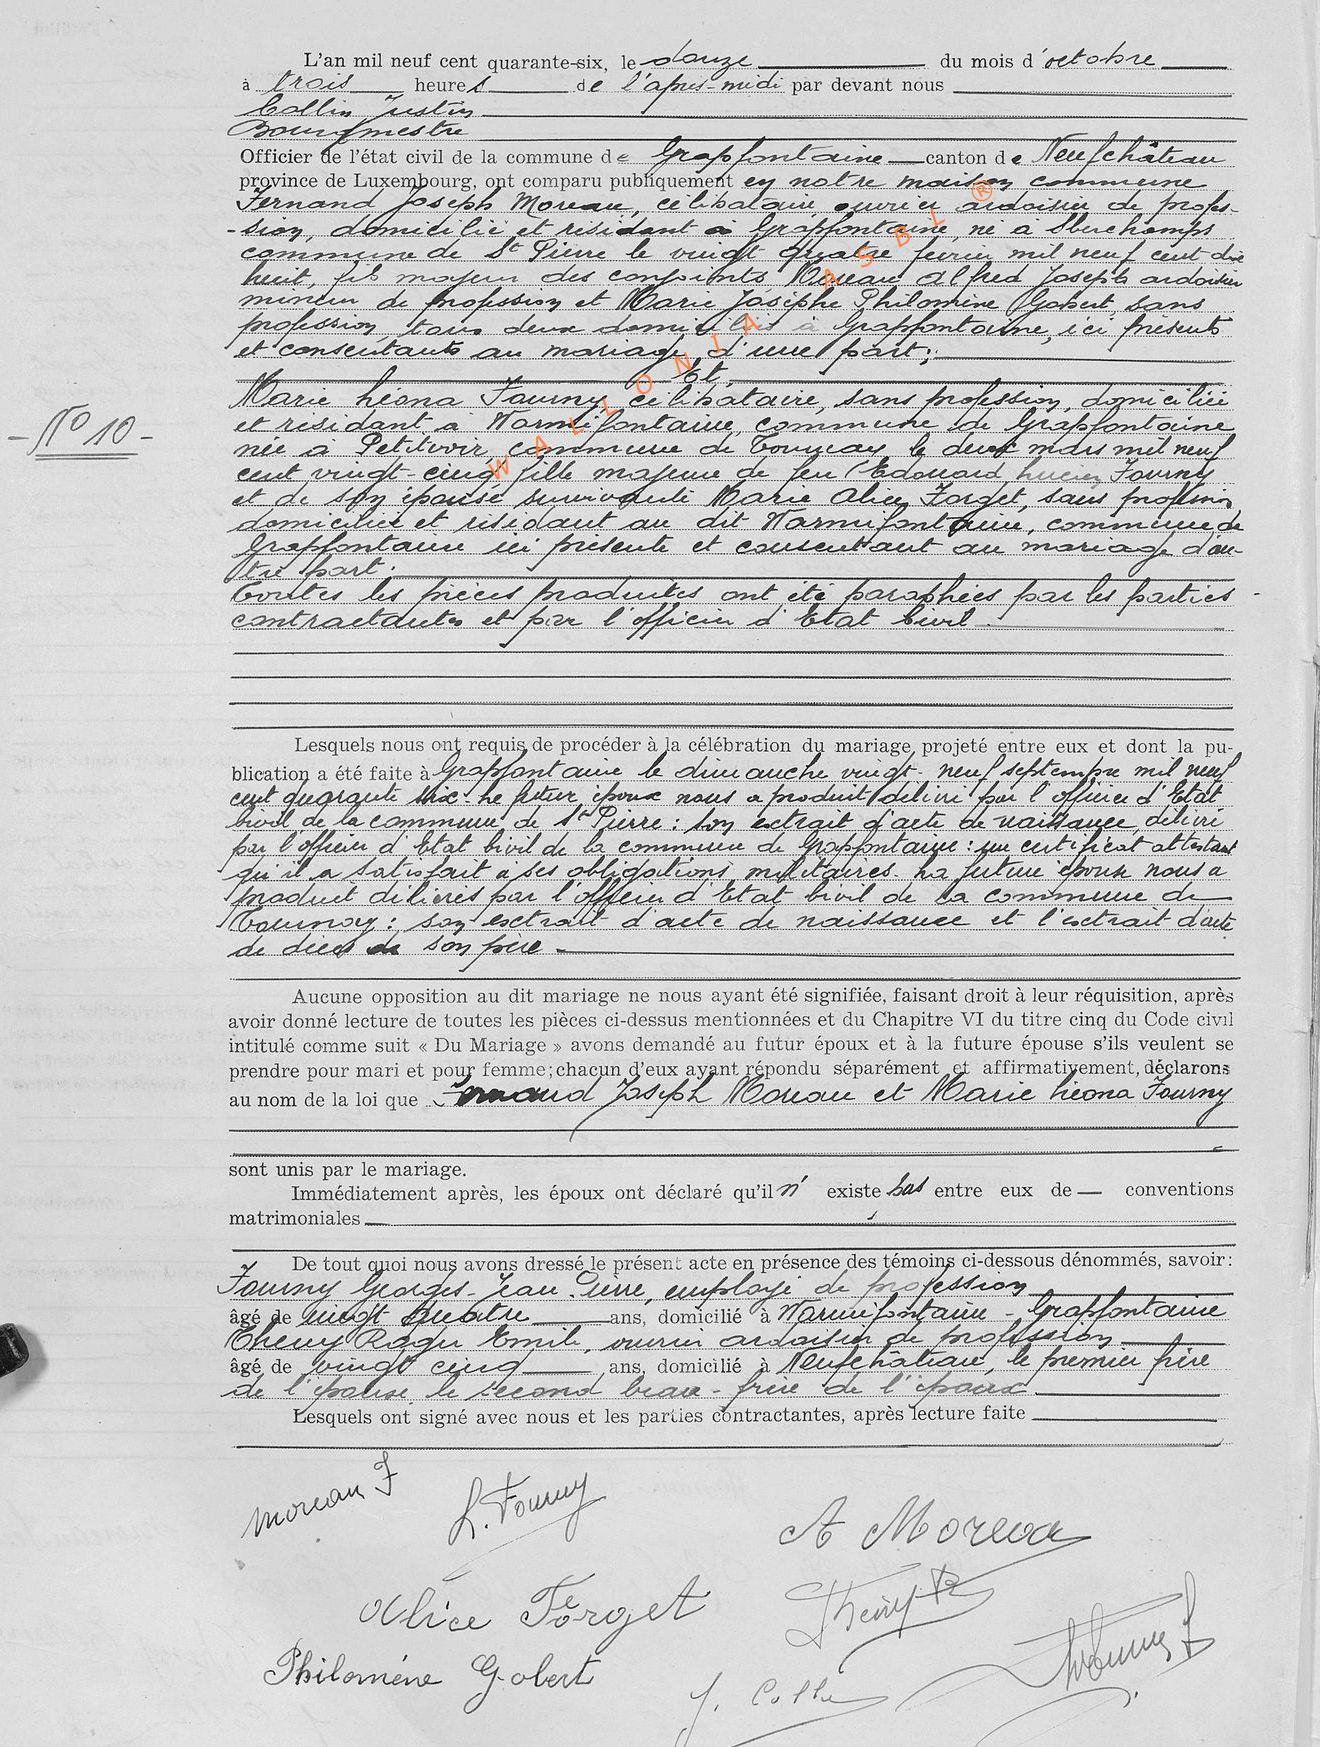 L'an mil neuf cent quarante-six, le douze du mois d'octobre
à trois heures de l'après-midi par devant nous
Collin Justin
Bourgmestre
Officier de l'état civil de la commune de Grapfontaine canton de Neufchâteau
province de Luxembourg, ont comparu publiquement en notre maison commune
Fernand Joseph Moreau, célibataire, ouvrier ardoisier de profes-
-sion, domicilié et résidant à Grapfontaine, né à Sberchamps
commune de St Pierre le vingt quatre février mil neuf cent dix
huit, fils majeur des conjoints Moreau Alfred Joseph ardoisier
mineur de profession et Marie Josèphe Philomène Gobert sans
profession, tous deux domiciliés à Grapfontaine, ici présents
et consentants au mariage, d'une part;
Et,
Marie Léona Fourny, célibataire, sans profession, domiciliée
- No 10 -
et résidant à Warmifontaine, commune de Grapfontaine
née à Petitvoir, commune de Tournay le deux mars mil neuf
cent vingt-cinq, fille majeure de feu Edouard Lucien Fourny
et de son épouse survivante Marie Alice Forget, sans profession,
domiciliée et résidant au dit Warmifontaine, commune de
Grapfontaine ici présente et consentant au mariage d'au-
tre part.
Toutes les pièces produites ont été paraphées par les parties
contractantes et par l'officier d'Etat Civil
Lesquels nous ont requis de procéder à la célébration du mariage projeté entre eux et dont la pu-
blication a été faite à Grapfontaine le dimanche vingt-neuf septembre mil neuf
cent quarante six. Le futur époux nous a produit délivré par l'officier d'Etat
Civil de la commune de St Pierre : son extrait d'acte de naissance délivré
par l'officier d'Etat Civil de la commune de Grapfontaine : un certificat attestant
qu'il a satisfait à ses obligations militaires. La future épouse nous a
produit délivrés par l'officier d'Etat Civil de la commune de
Tournay : son extrait d'acte de naissance et l'extrait d'acte
de décès de son père
Aucune opposition au dit mariage ne nous ayant été signifiée, faisant droit à leur réquisition, après
avoir donné lecture de toutes les pièces ci-dessus mentionnées et du Chapitre VI du titre cinq du Code civil
intitulé comme suit « Du Mariage » avons demandé au futur époux et à la future épouse s'ils veulent se
prendre pour mari et pour femme; chacun d'eux ayant répondu séparément et affirmativement, déclarons
au nom de la loi que Fernand Joseph Moreau et Marie Léona Fourny
sont unis par le mariage.
Immédiatement après, les époux ont déclaré qu'il n' existe pas entre eux de conventions
matrimoniales
De tout quoi nous avons dressé le présent acte en présence des témoins ci-dessous dénommés, savoir:
Fourny Georges-Jean-Pierre, employé de profession
âgé de vingt quatre ans, domicilié à Warmifontaine - Grapfontaine
Theny Roger Emile, ouvrier ardoisier de profession
âgé de vingt cinq ans, domicilié à Neufchâteau, le premier frère
de l'épouse, le second beau-frère de l'époux
Lesquels ont signé avec nous et les parties contractantes, après lecture faite
Moreau F
L. Fourny
A Moreau
Alice Forget
Theny R
Fourny G
Philomène Gobert
J. Collin
WALLONIA ASBL ®